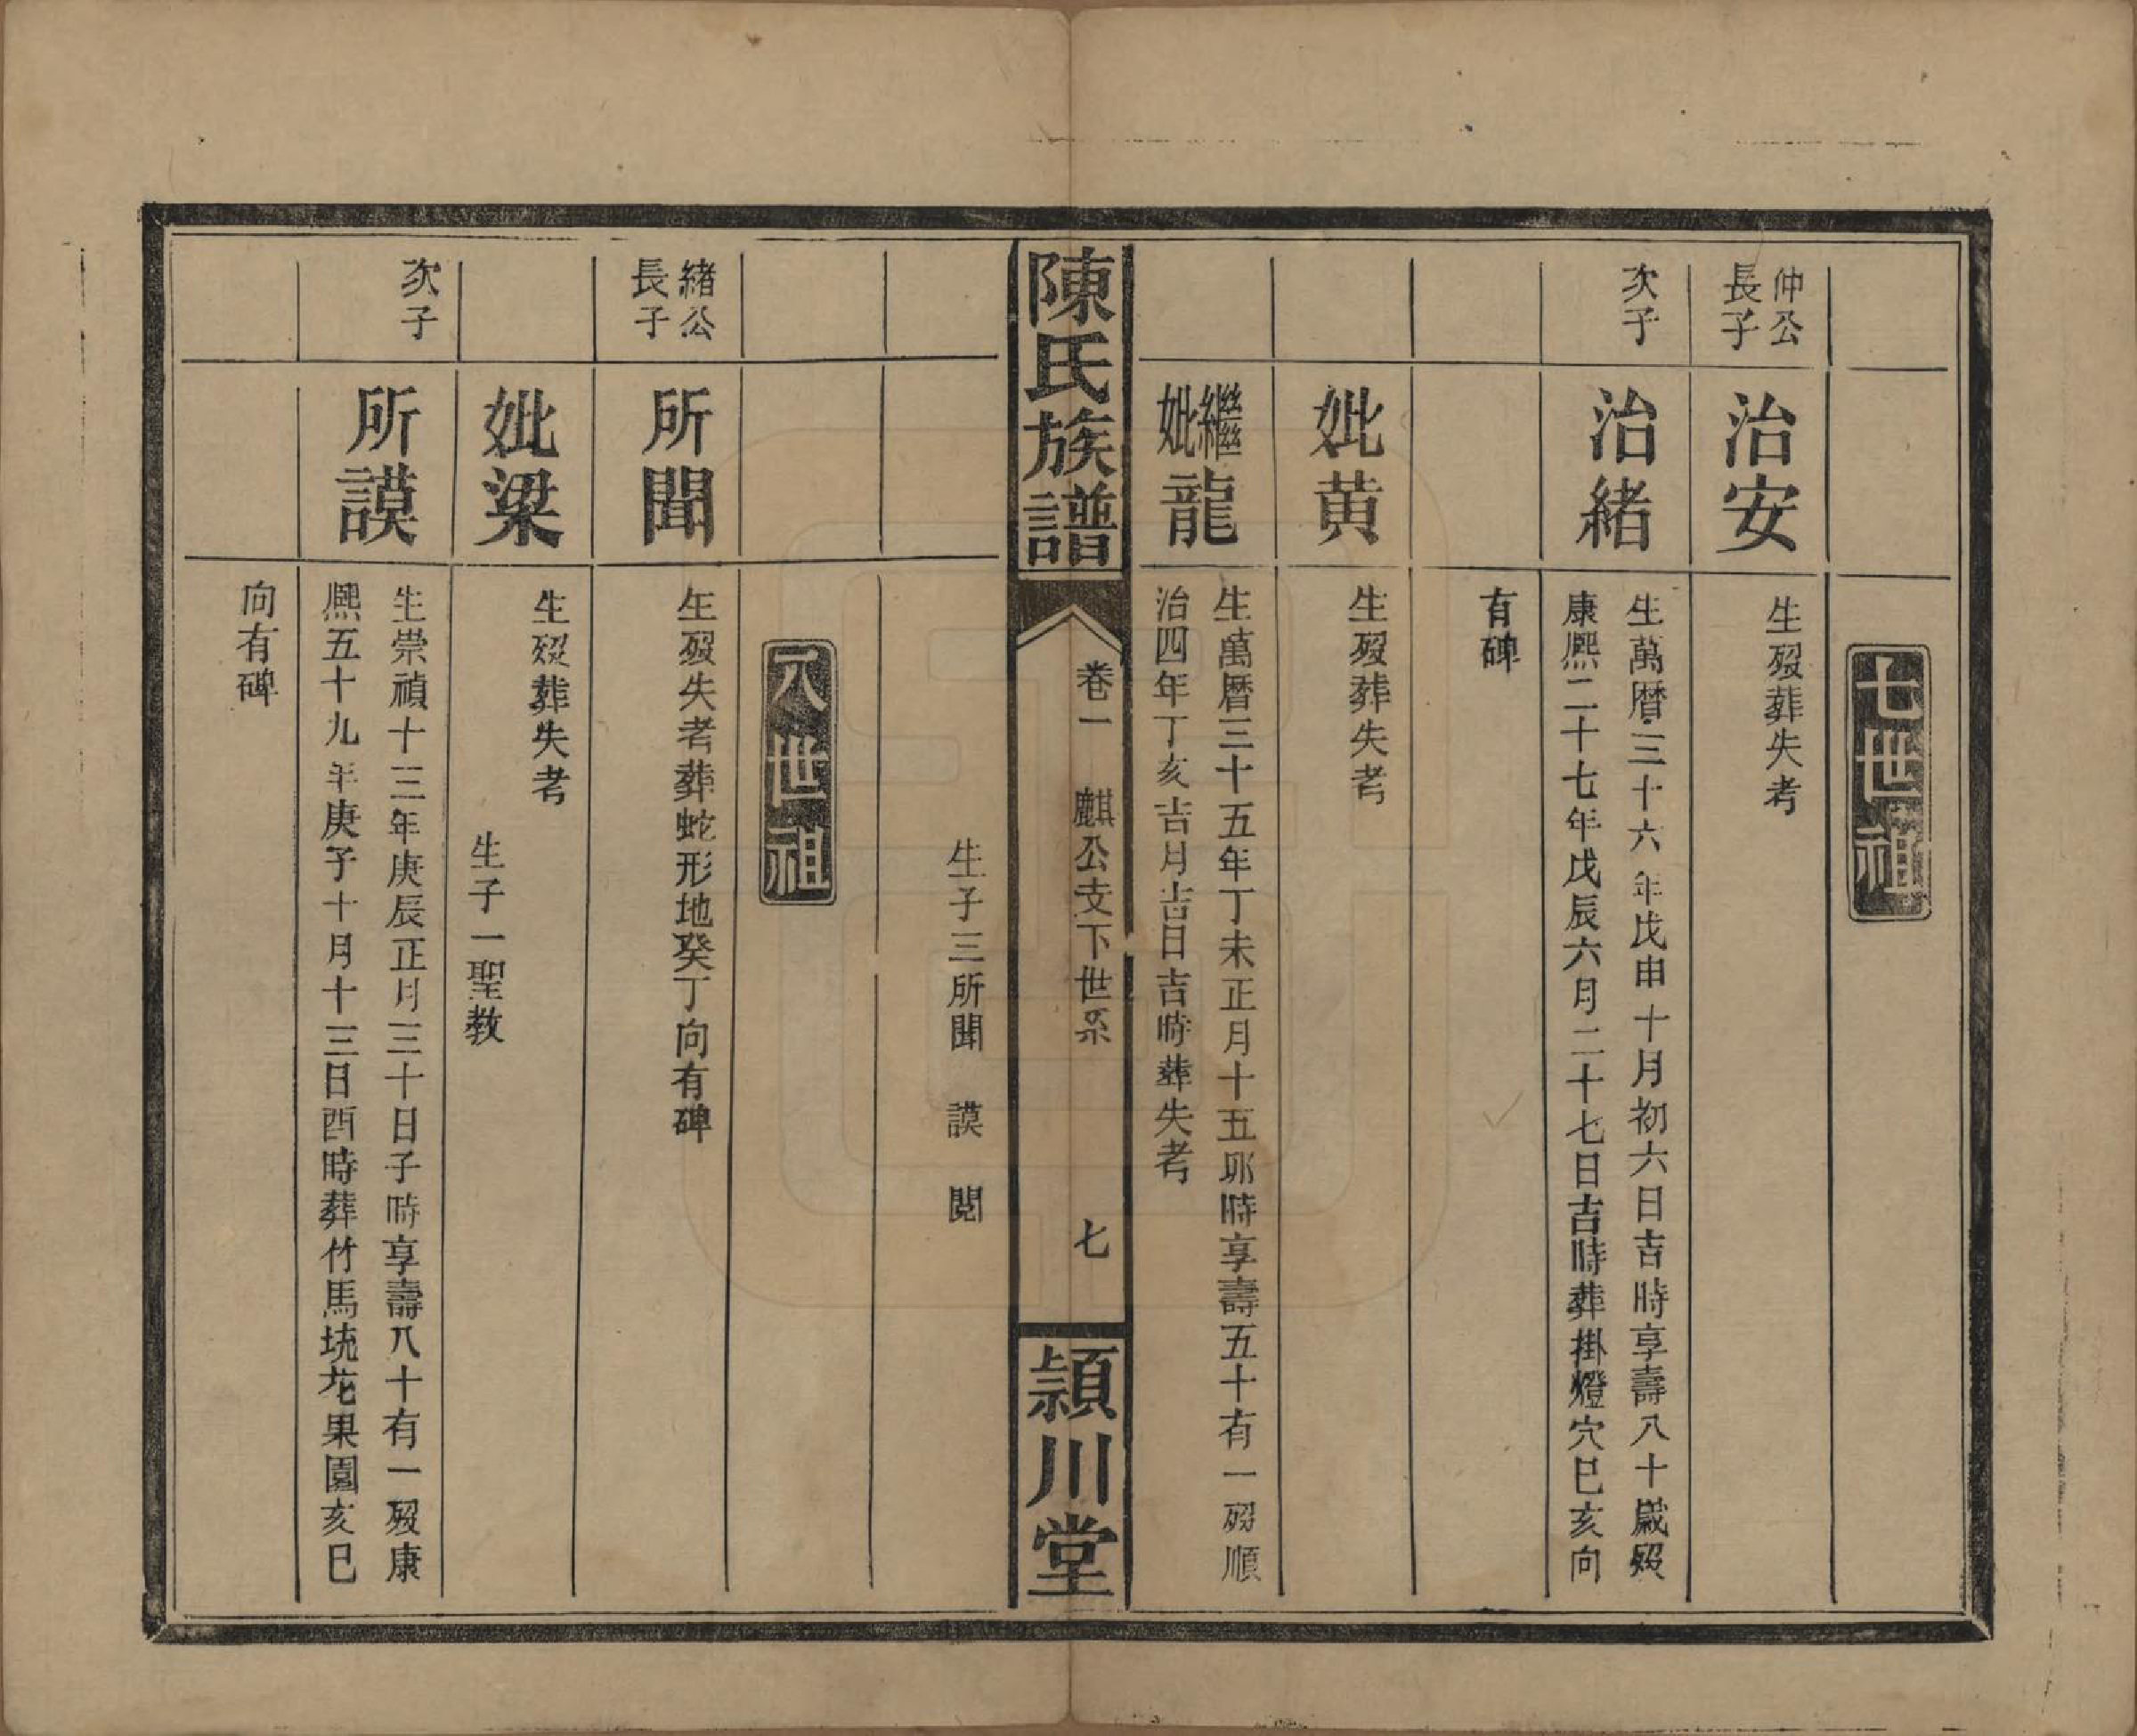 七世祖
仲公
長子
治安
生歿葬失考
次子
治緒
生萬曆三十六年戊申十月初六日吉時享壽八十歲歿
康熙二十七年戊辰六月二十七日吉時葬掛燈穴巳亥向
有碑
妣黄
生歿葬失考
繼
妣
龍
生萬曆三十五年丁未正月十五夘時享壽五十有一歿順
治四年丁亥吉月吉日吉時葬失考
陳氏族譜
卷一 麒公支下世系 七
潁川堂
生子三所聞 謨 閱
八世祖
緒公
長子
所聞
生歿失考葬蛇形地癸丁向有碑
妣梁
生歿葬失考
生子一聖教
次子
所謨
生崇禎十三年庚辰正月三十日子時享壽八十有一歿康
熙五十九年庚子十月十三日酉時葬竹馬垸花果園亥巳
向有碑